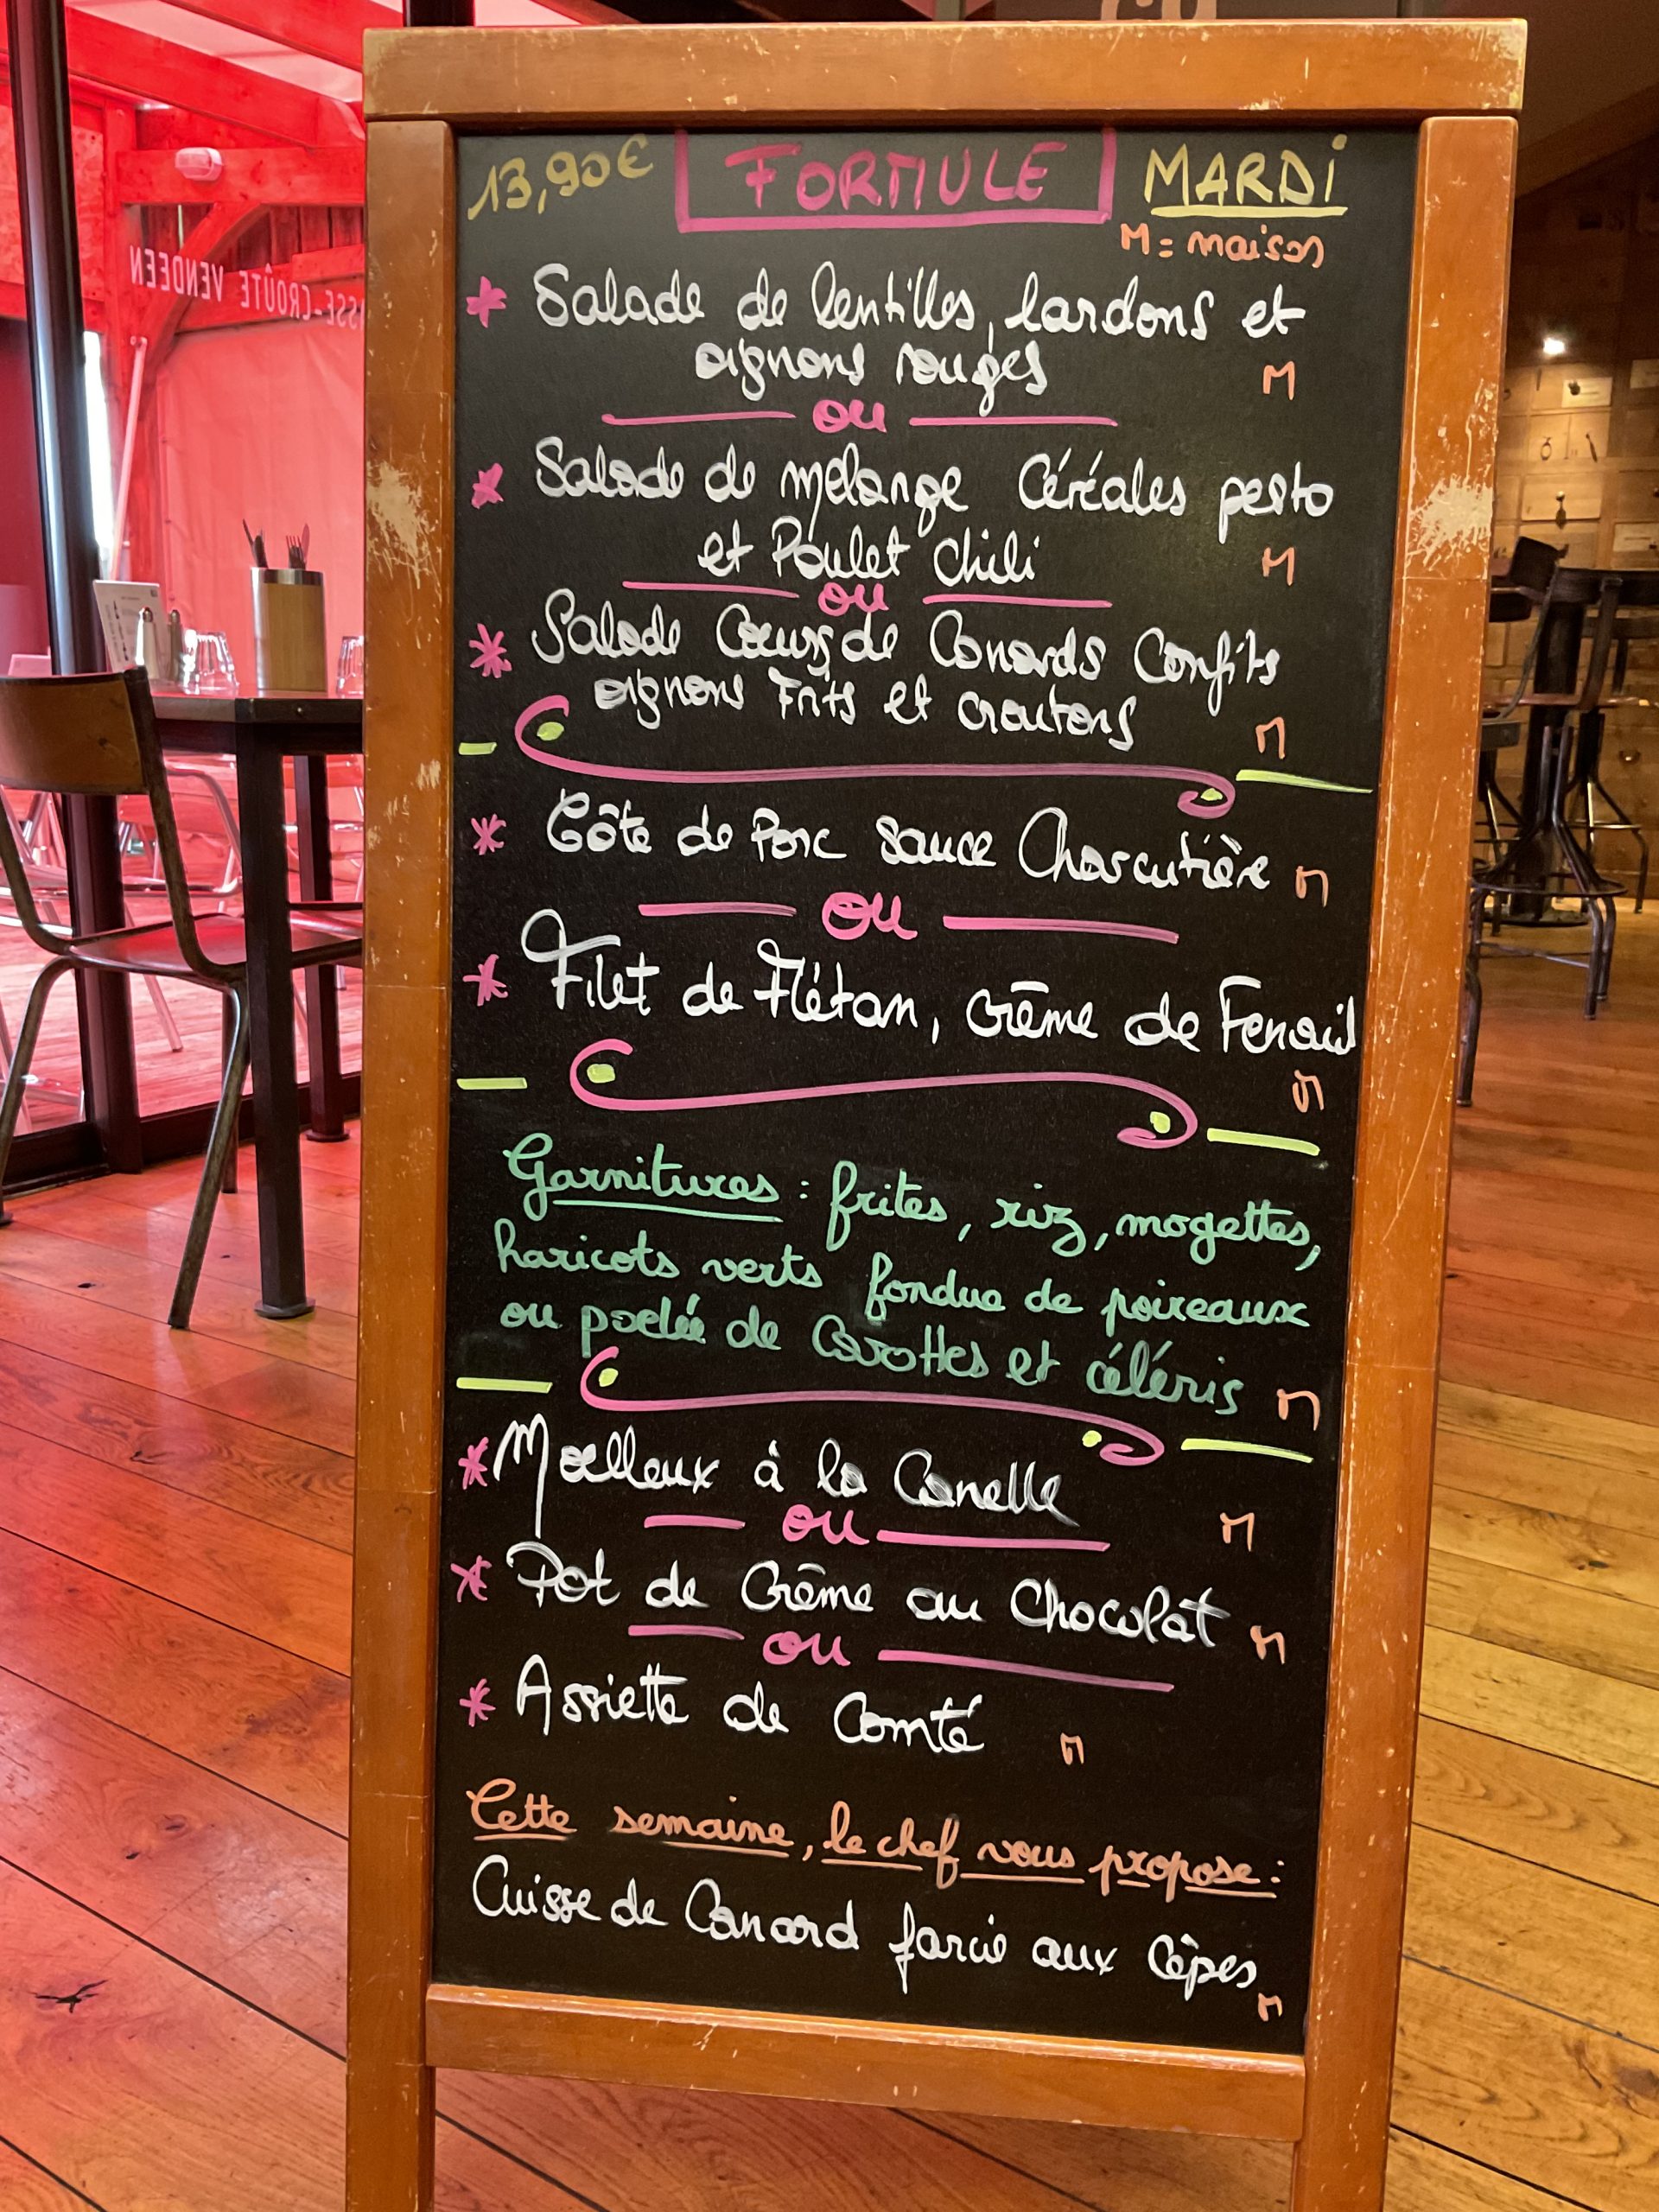 13,90€ FORMULE MARDI
M = maison
* Salade de lentilles, lardons et
oignons rouges M
ou
* Salade de mélange Céréales pesto
et Poulet Chili M
ou
* Salade Coeurs de Canards Confits
oignons Frits et croutons M
* Côte de Porc sauce Charcutière M
ou
* Filet de Flétan, crème de Fenouil
M
Garnitures : frites, riz, mogettes,
haricots verts fondue de poireaux
ou poelée de Carottes et céléris M
* Moelleux à la Canelle
M
ou
* Pot de Crème au Chocolat M
ou
* Assiette de Comté M
Cette semaine, le chef vous propose :
Cuisse de Canard farcie aux Cèpes
M
SSE-CROÛTE VENDEEN